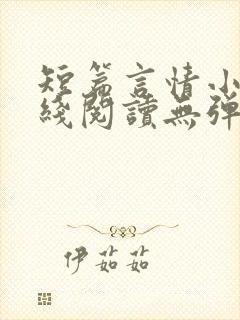 短篇言情小
綫閱讀無彈
伊茹茹